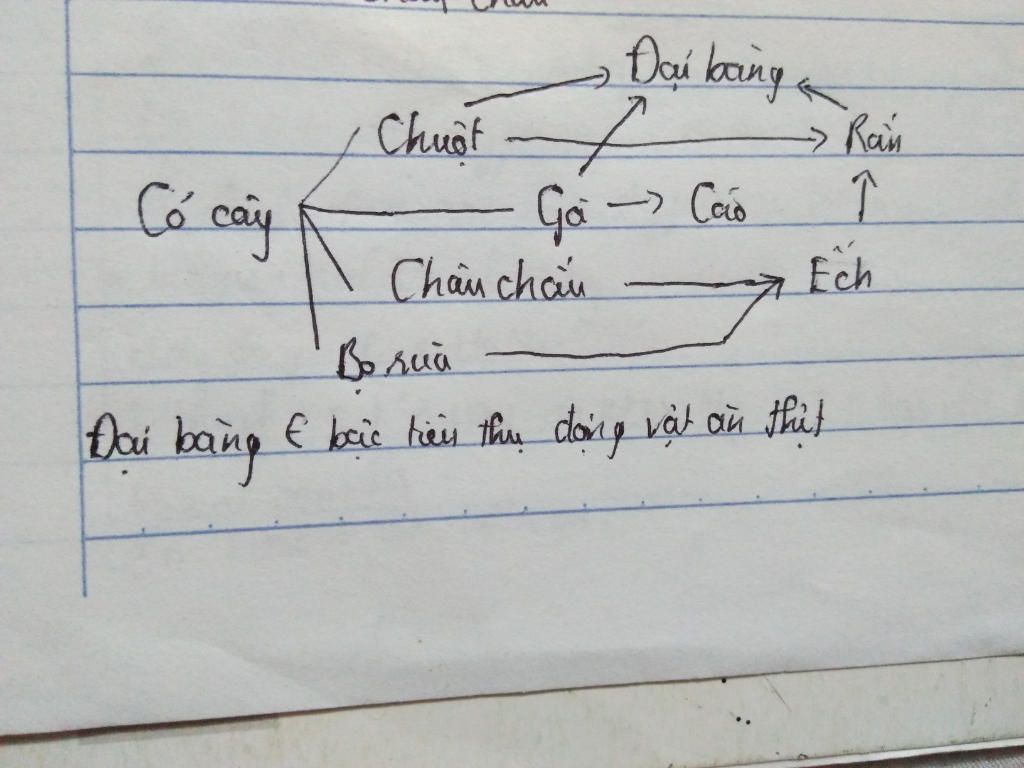 Đại bàng
Chuột Rắn
Cỏ cây Gà Cáo
Châu chấu Ếch
Bọ rùa
Đại bàng ∈ bậc tiêu thụ động vật ăn thịt